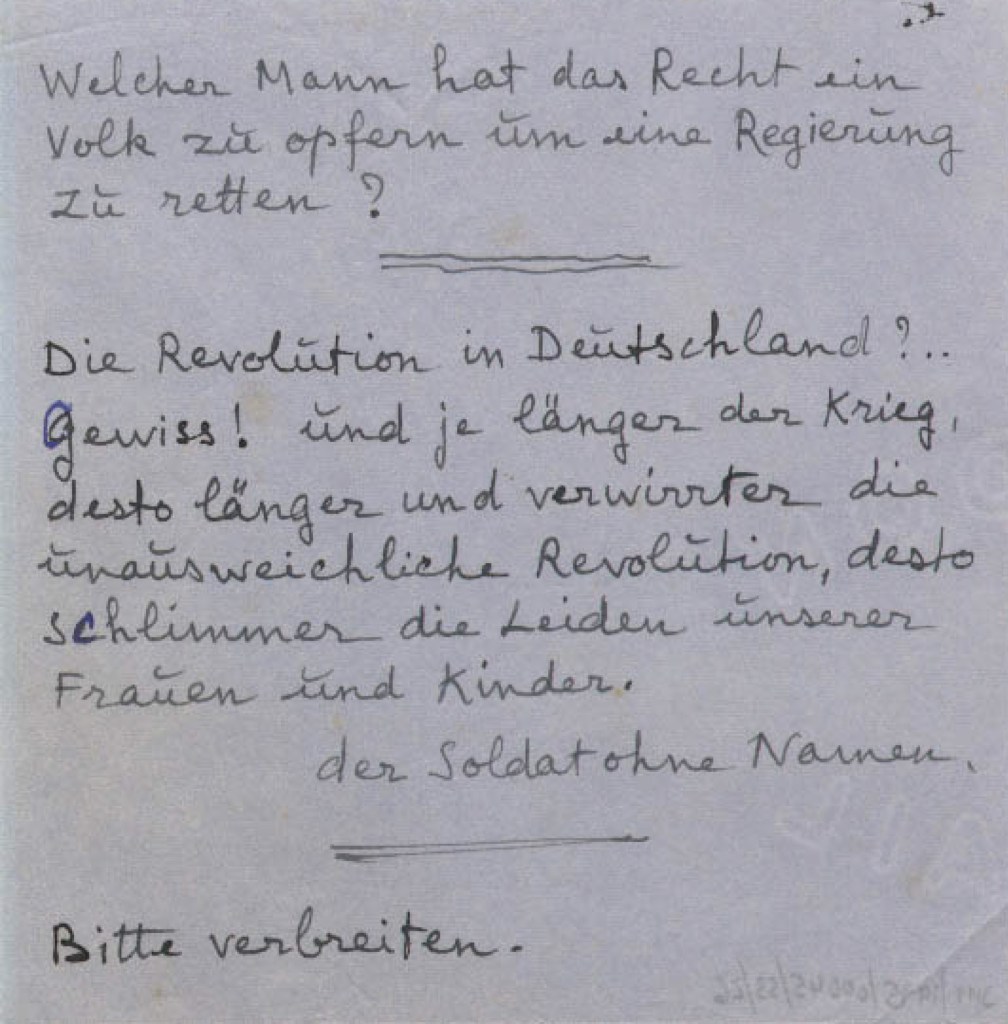 Welcher Mann hat das Recht ein
Volk zu opfern um eine Regierung
zu retten ?
Die Revolution in Deutschland ?..
Gewiss! und je länger der Krieg,
desto länger und verwirrter die
unausweichliche Revolution, desto
schlimmer die Leiden unserer
Frauen und Kinder.
der Soldat ohne Namen.
Bitte verbreiten.